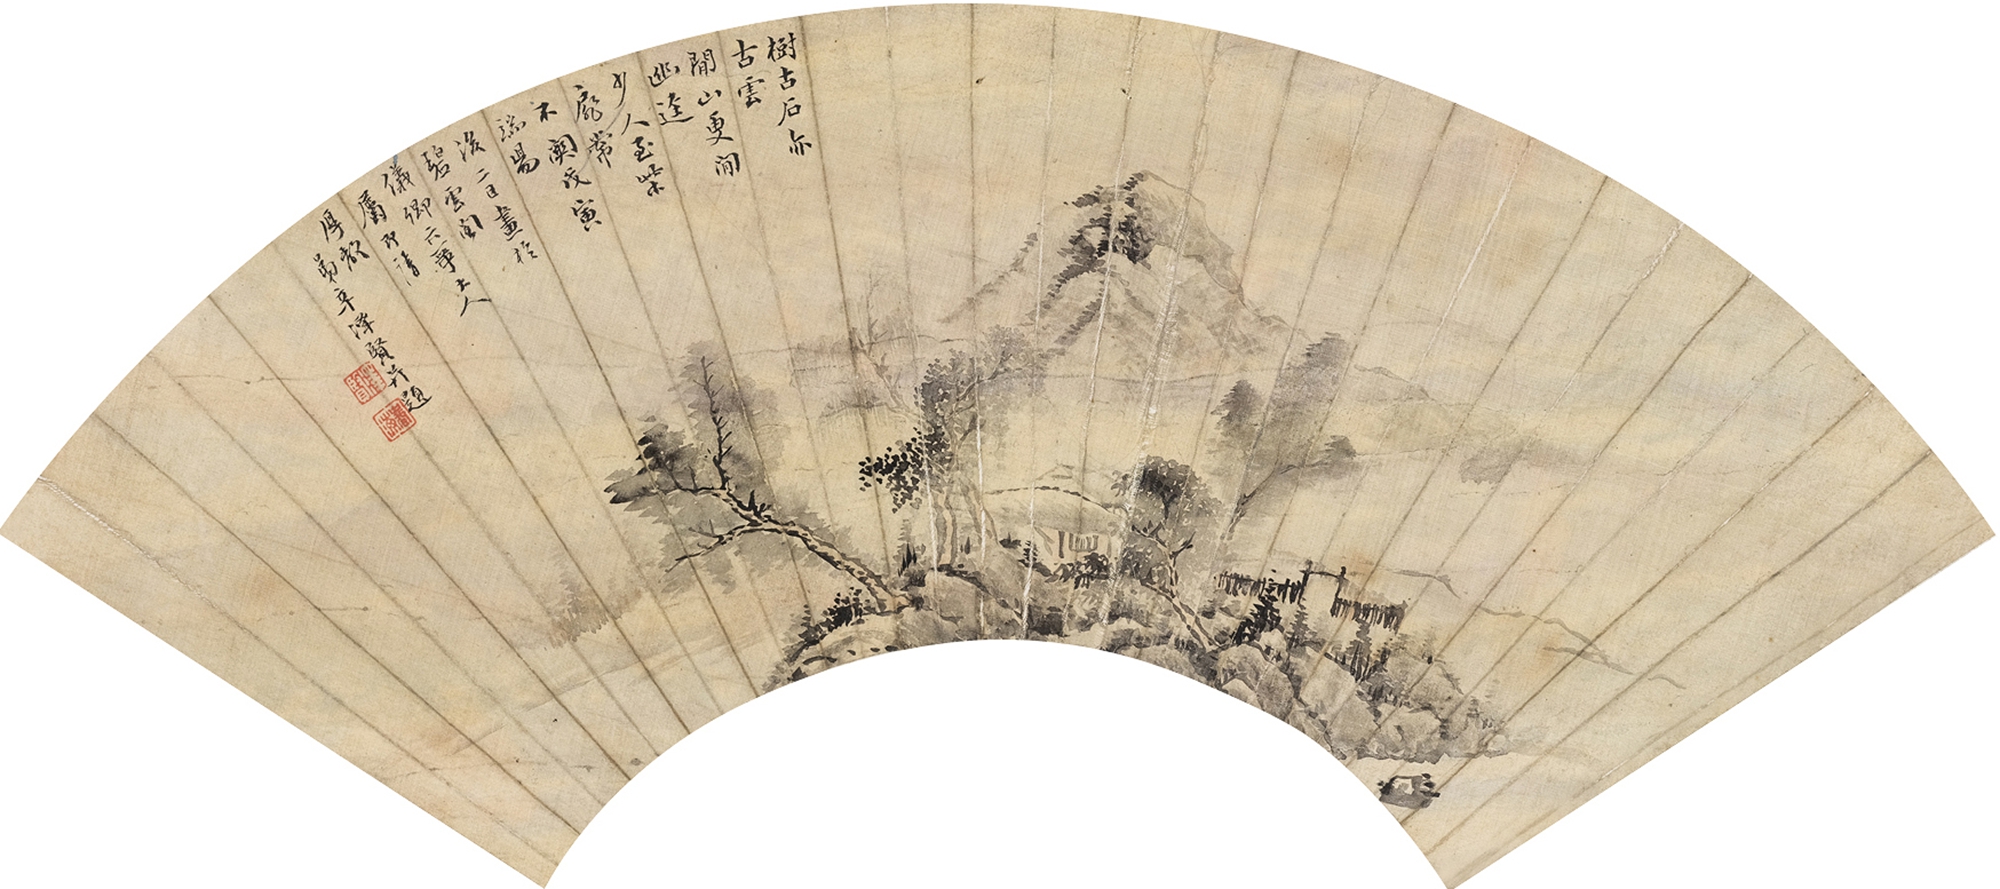 樹古石亦
古雲
閒山更閒
幽逕
少人至柴
扉常
不關戊寅
端陽
後二日畫於
碧雲閣
儀卿六弟大人
屬即請
厚教
弟辛澤賢并題